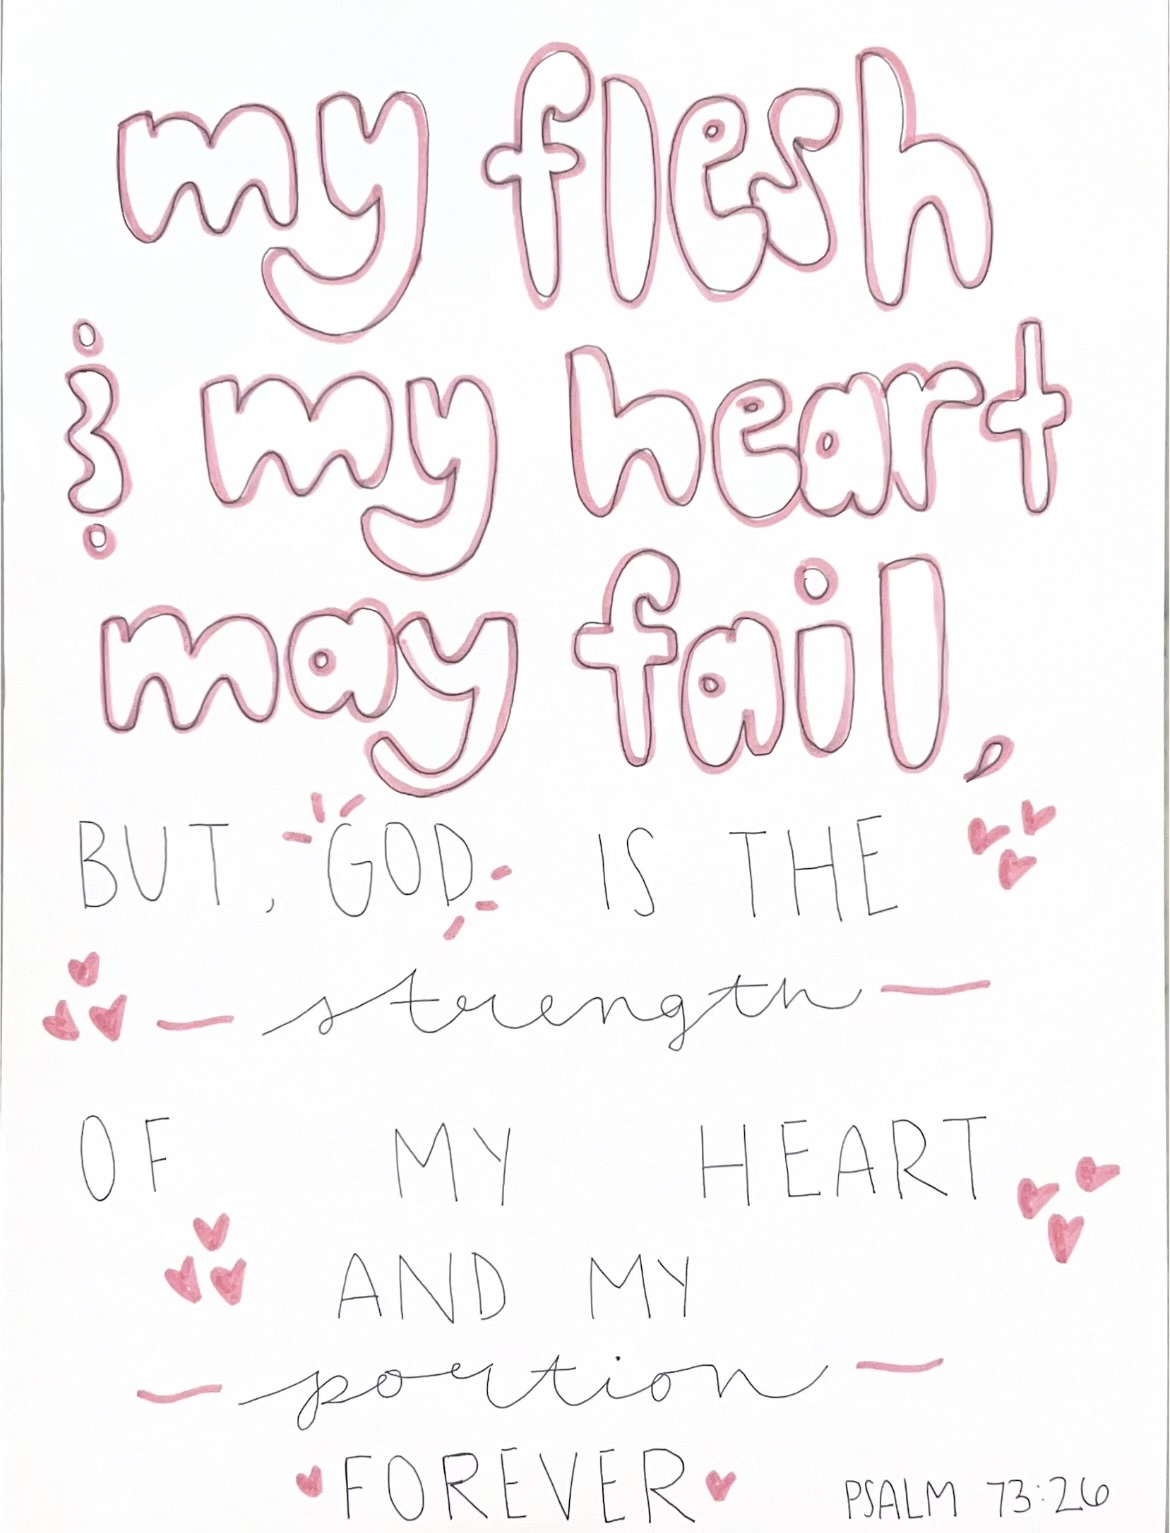 my flesh
& my heart
may fail,
BUT, GOD IS THE
strength
OF MY HEART
AND MY
portion
FOREVER
PSALM 73:26